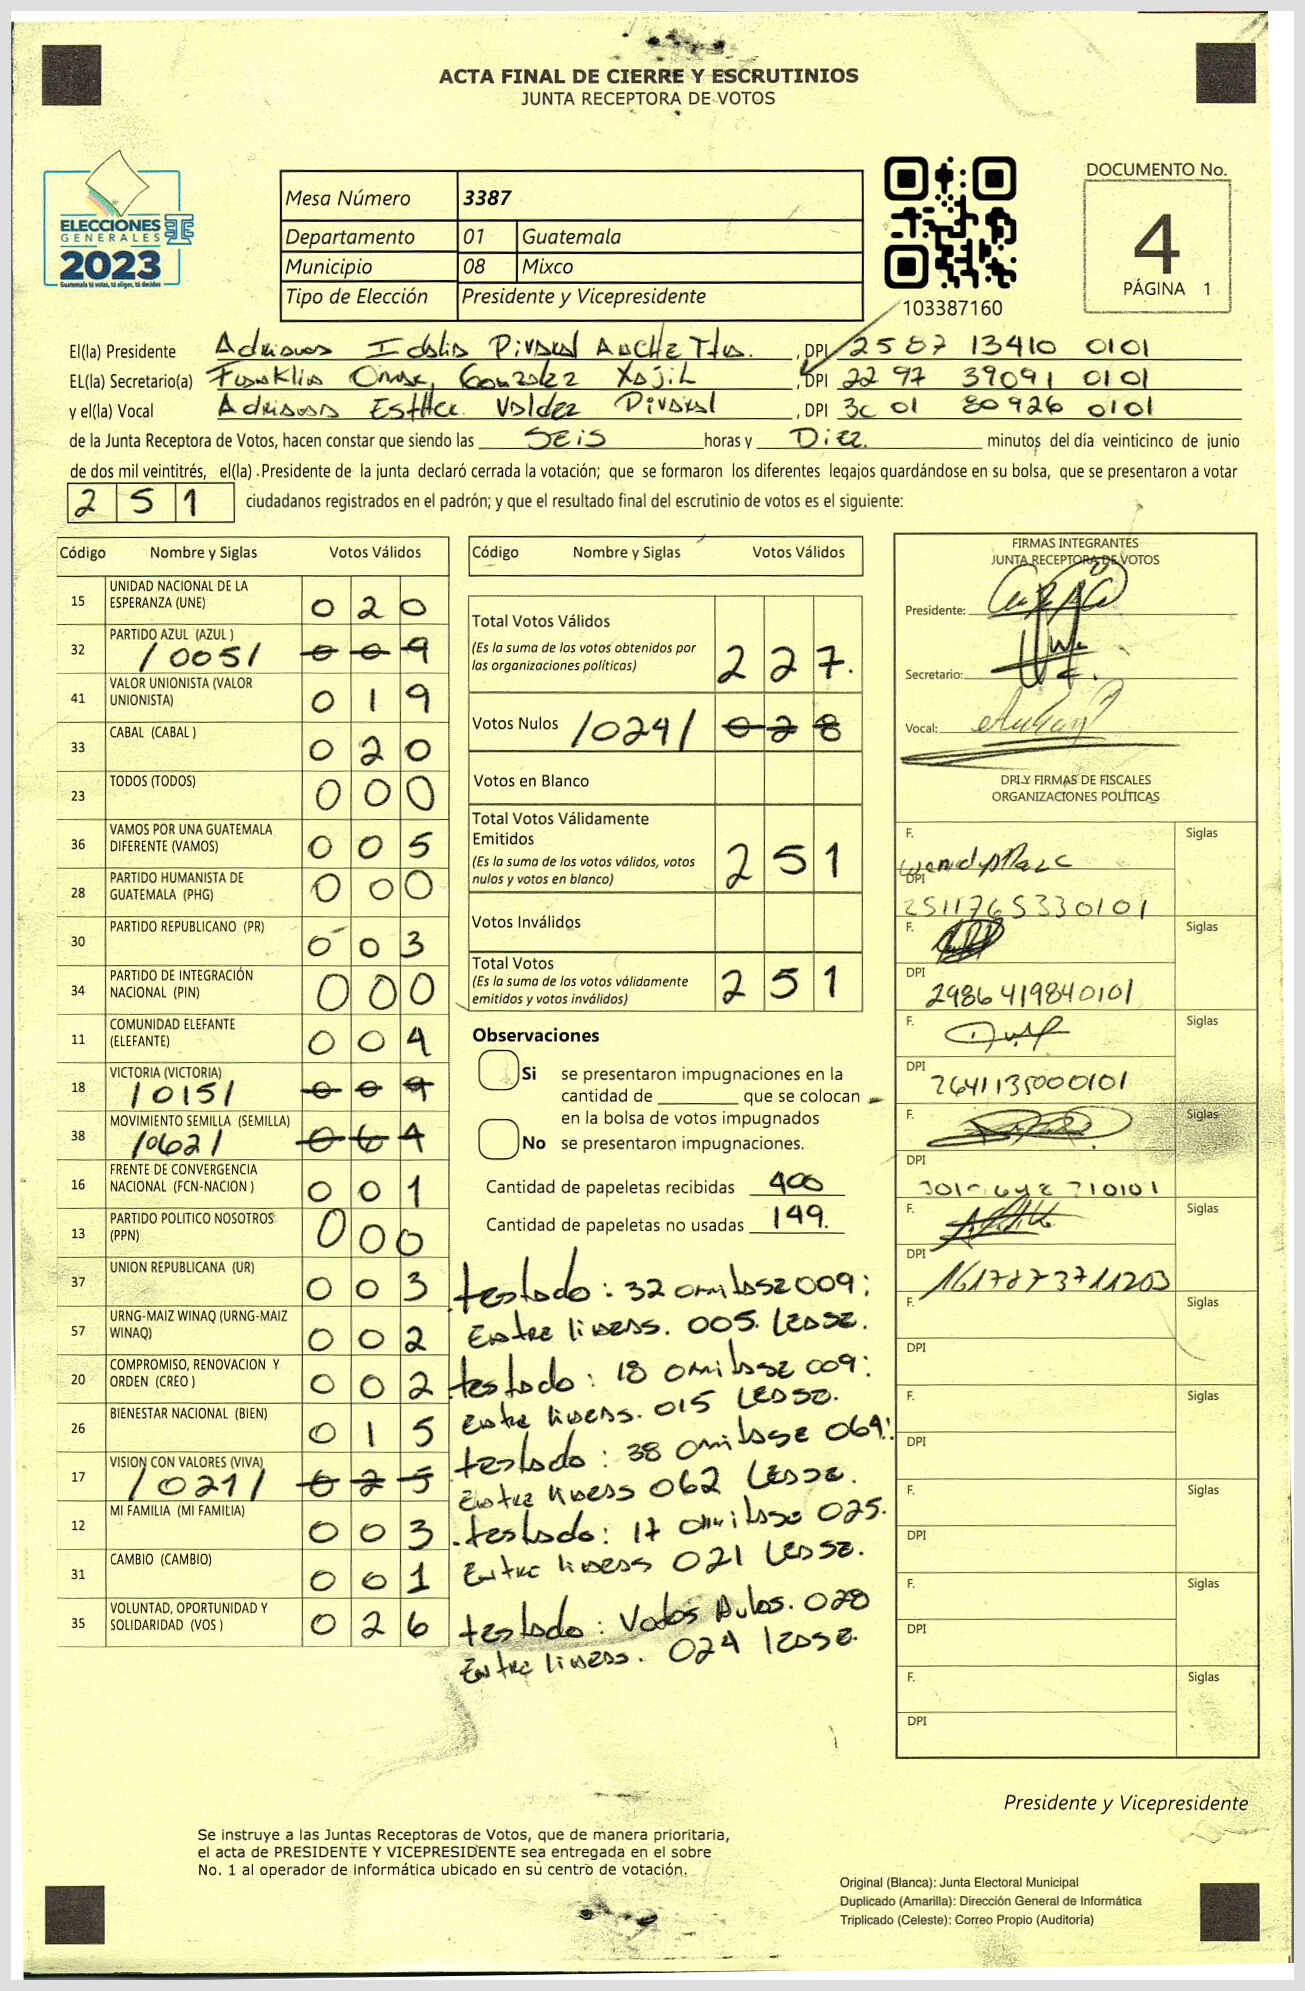 ACTA FINAL DE CIERRE Y ESCRUTINIOS
JUNTA RECEPTORA DE VOTOS
ELECCIONES
GENERALES
2023
Guatemala tú votas, tú eliges, tú decides
Mesa Número 3387
Departamento 01 Guatemala
Municipio 08 Mixco
Tipo de Elección Presidente y Vicepresidente
103387160
DOCUMENTO No.
4
PÁGINA 1
El(la) Presidente Adriana Idalia Pivaral , DPI 2587 13410 0101
EL(la) Secretario(a) Franklin Omar Gonzalez Xajil , DPI 2297 39091 0101
y el(la) Vocal Adriana Esther Valdez Pivaral , DPI 3001 80926 0101
de la Junta Receptora de Votos, hacen constar que siendo las SEIS horas y DIEZ minutos del día veinticinco de junio
de dos mil veintitrés, el(la) Presidente de la junta declaró cerrada la votación; que se formaron los diferentes legajos quardándose en su bolsa, que se presentaron a votar
251 ciudadanos registrados en el padrón; y que el resultado final del escrutinio de votos es el siguiente:
Código Nombre y Siglas Votos Válidos
15 UNIDAD NACIONAL DE LA ESPERANZA (UNE) 020
32 PARTIDO AZUL (AZUL ) /005/ 009
41 VALOR UNIONISTA (VALOR UNIONISTA) 019
33 CABAL (CABAL ) 020
23 TODOS (TODOS) 000
36 VAMOS POR UNA GUATEMALA DIFERENTE (VAMOS) 005
28 PARTIDO HUMANISTA DE GUATEMALA (PHG) 000
30 PARTIDO REPUBLICANO (PR) 003
34 PARTIDO DE INTEGRACIÓN NACIONAL (PIN) 000
11 COMUNIDAD ELEFANTE (ELEFANTE) 004
18 VICTORIA (VICTORIA) /015/ 009
38 MOVIMIENTO SEMILLA (SEMILLA) /062/ 064
16 FRENTE DE CONVERGENCIA NACIONAL (FCN-NACION ) 001
13 PARTIDO POLITICO NOSOTROS (PPN) 000
37 UNION REPUBLICANA (UR) 003
57 URNG-MAIZ WINAQ (URNG-MAIZ WINAQ) 002
20 COMPROMISO, RENOVACION Y ORDEN (CREO ) 002
26 BIENESTAR NACIONAL (BIEN) 015
17 VISION CON VALORES (VIVA) /021/ 025
12 MI FAMILIA (MI FAMILIA) 003
31 CAMBIO (CAMBIO) 001
35 VOLUNTAD, OPORTUNIDAD Y SOLIDARIDAD (VOS ) 026
Código Nombre y Siglas Votos Válidos
Total Votos Válidos
(Es la suma de los votos obtenidos por
las organizaciones políticas) 227.
Votos Nulos /024/ 028
Votos en Blanco
Total Votos Válidamente
Emitidos
(Es la suma de los votos válidos, votos
nulos y votos en blanco) 251
Votos Inválidos
Total Votos
(Es la suma de los votos válidamente
emitidos y votos inválidos) 251
Observaciones
Si se presentaron impugnaciones en la
cantidad de ________ que se colocan
en la bolsa de votos impugnados
No se presentaron impugnaciones.
Cantidad de papeletas recibidas 400
Cantidad de papeletas no usadas 149.
testado: 32 omitase 009:
Entre lineas. 005. Lease.
testado: 18 omitase 009:
Entre lineas. 015 Lease.
testado: 38 omitase 064:
Entre lineas 062 Lease.
testado: 17 omitase 025.
Entre lineas 021 Lease.
testado: Votos Nulos. 028
Entre lineas. 024 lease.
FIRMAS INTEGRANTES
JUNTA RECEPTORA DE VOTOS
Presidente:
Secretario:
Vocal:
DPI Y FIRMAS DE FISCALES
ORGANIZACIONES POLÍTICAS
F. Siglas
DPI
2511765330101
F. Siglas
DPI
2986419840101
F. Siglas
DPI
2641135000101
F. Siglas
DPI
F. Siglas
DPI
1617873711203
F. Siglas
DPI
F. Siglas
DPI
F. Siglas
DPI
F. Siglas
DPI
F. Siglas
DPI
Presidente y Vicepresidente
Se instruye a las Juntas Receptoras de Votos, que de manera prioritaria,
el acta de PRESIDENTE Y VICEPRESIDENTE sea entregada en el sobre
No. 1 al operador de informática ubicado en su centro de votación.
Original (Blanca): Junta Electoral Municipal
Duplicado (Amarilla): Dirección General de Informática
Triplicado (Celeste): Correo Propio (Auditoría)